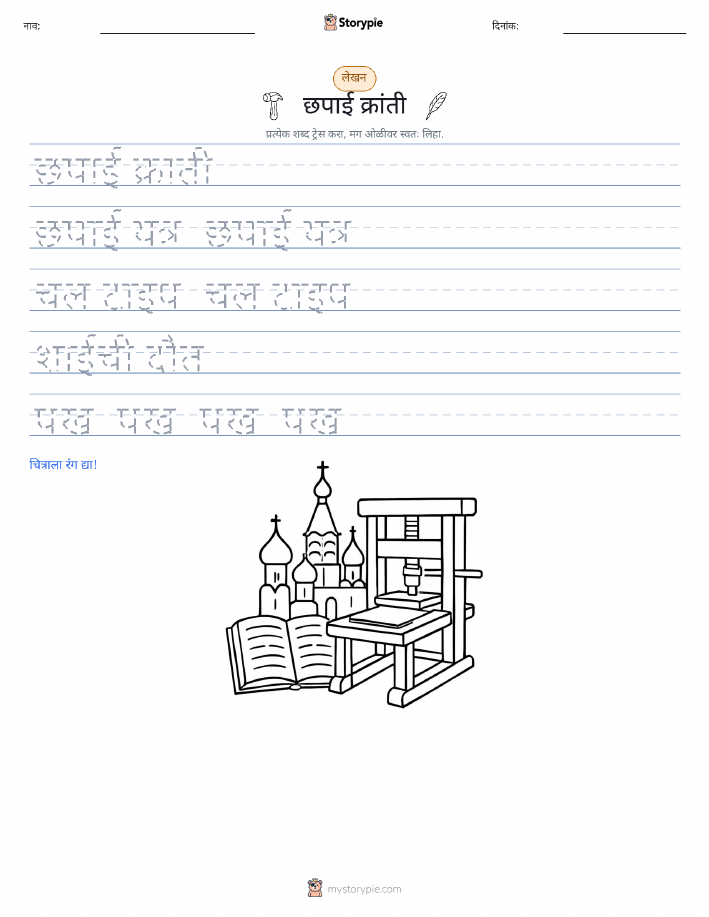 नाव:
Storypie
दिनांक:
लेखन
छपाई क्रांती
प्रत्येक शब्द ट्रेस करा, मग ओळीवर स्वतः लिहा.
छपाई क्राती
छपाई यत्र छपाई यत्र
चल टाइप चल टाइप
शाईची दौत
पख पख पख पख
चित्राला रंग द्या!
mystorypie.com